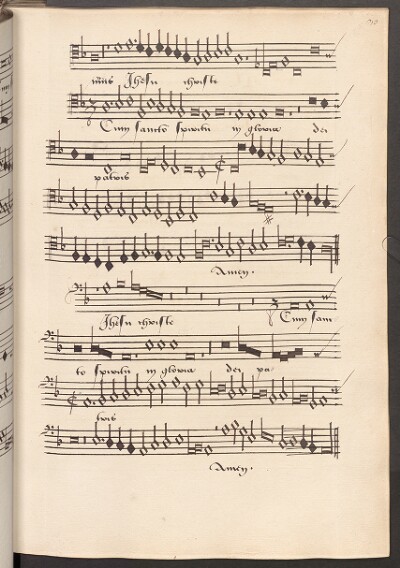 Jhesu christe
Cum sancto spiritu in gloria dei
patris
Amen.
Jhesu christe
Cum san
to spiritu in gloria dei pa
tris
Amen.